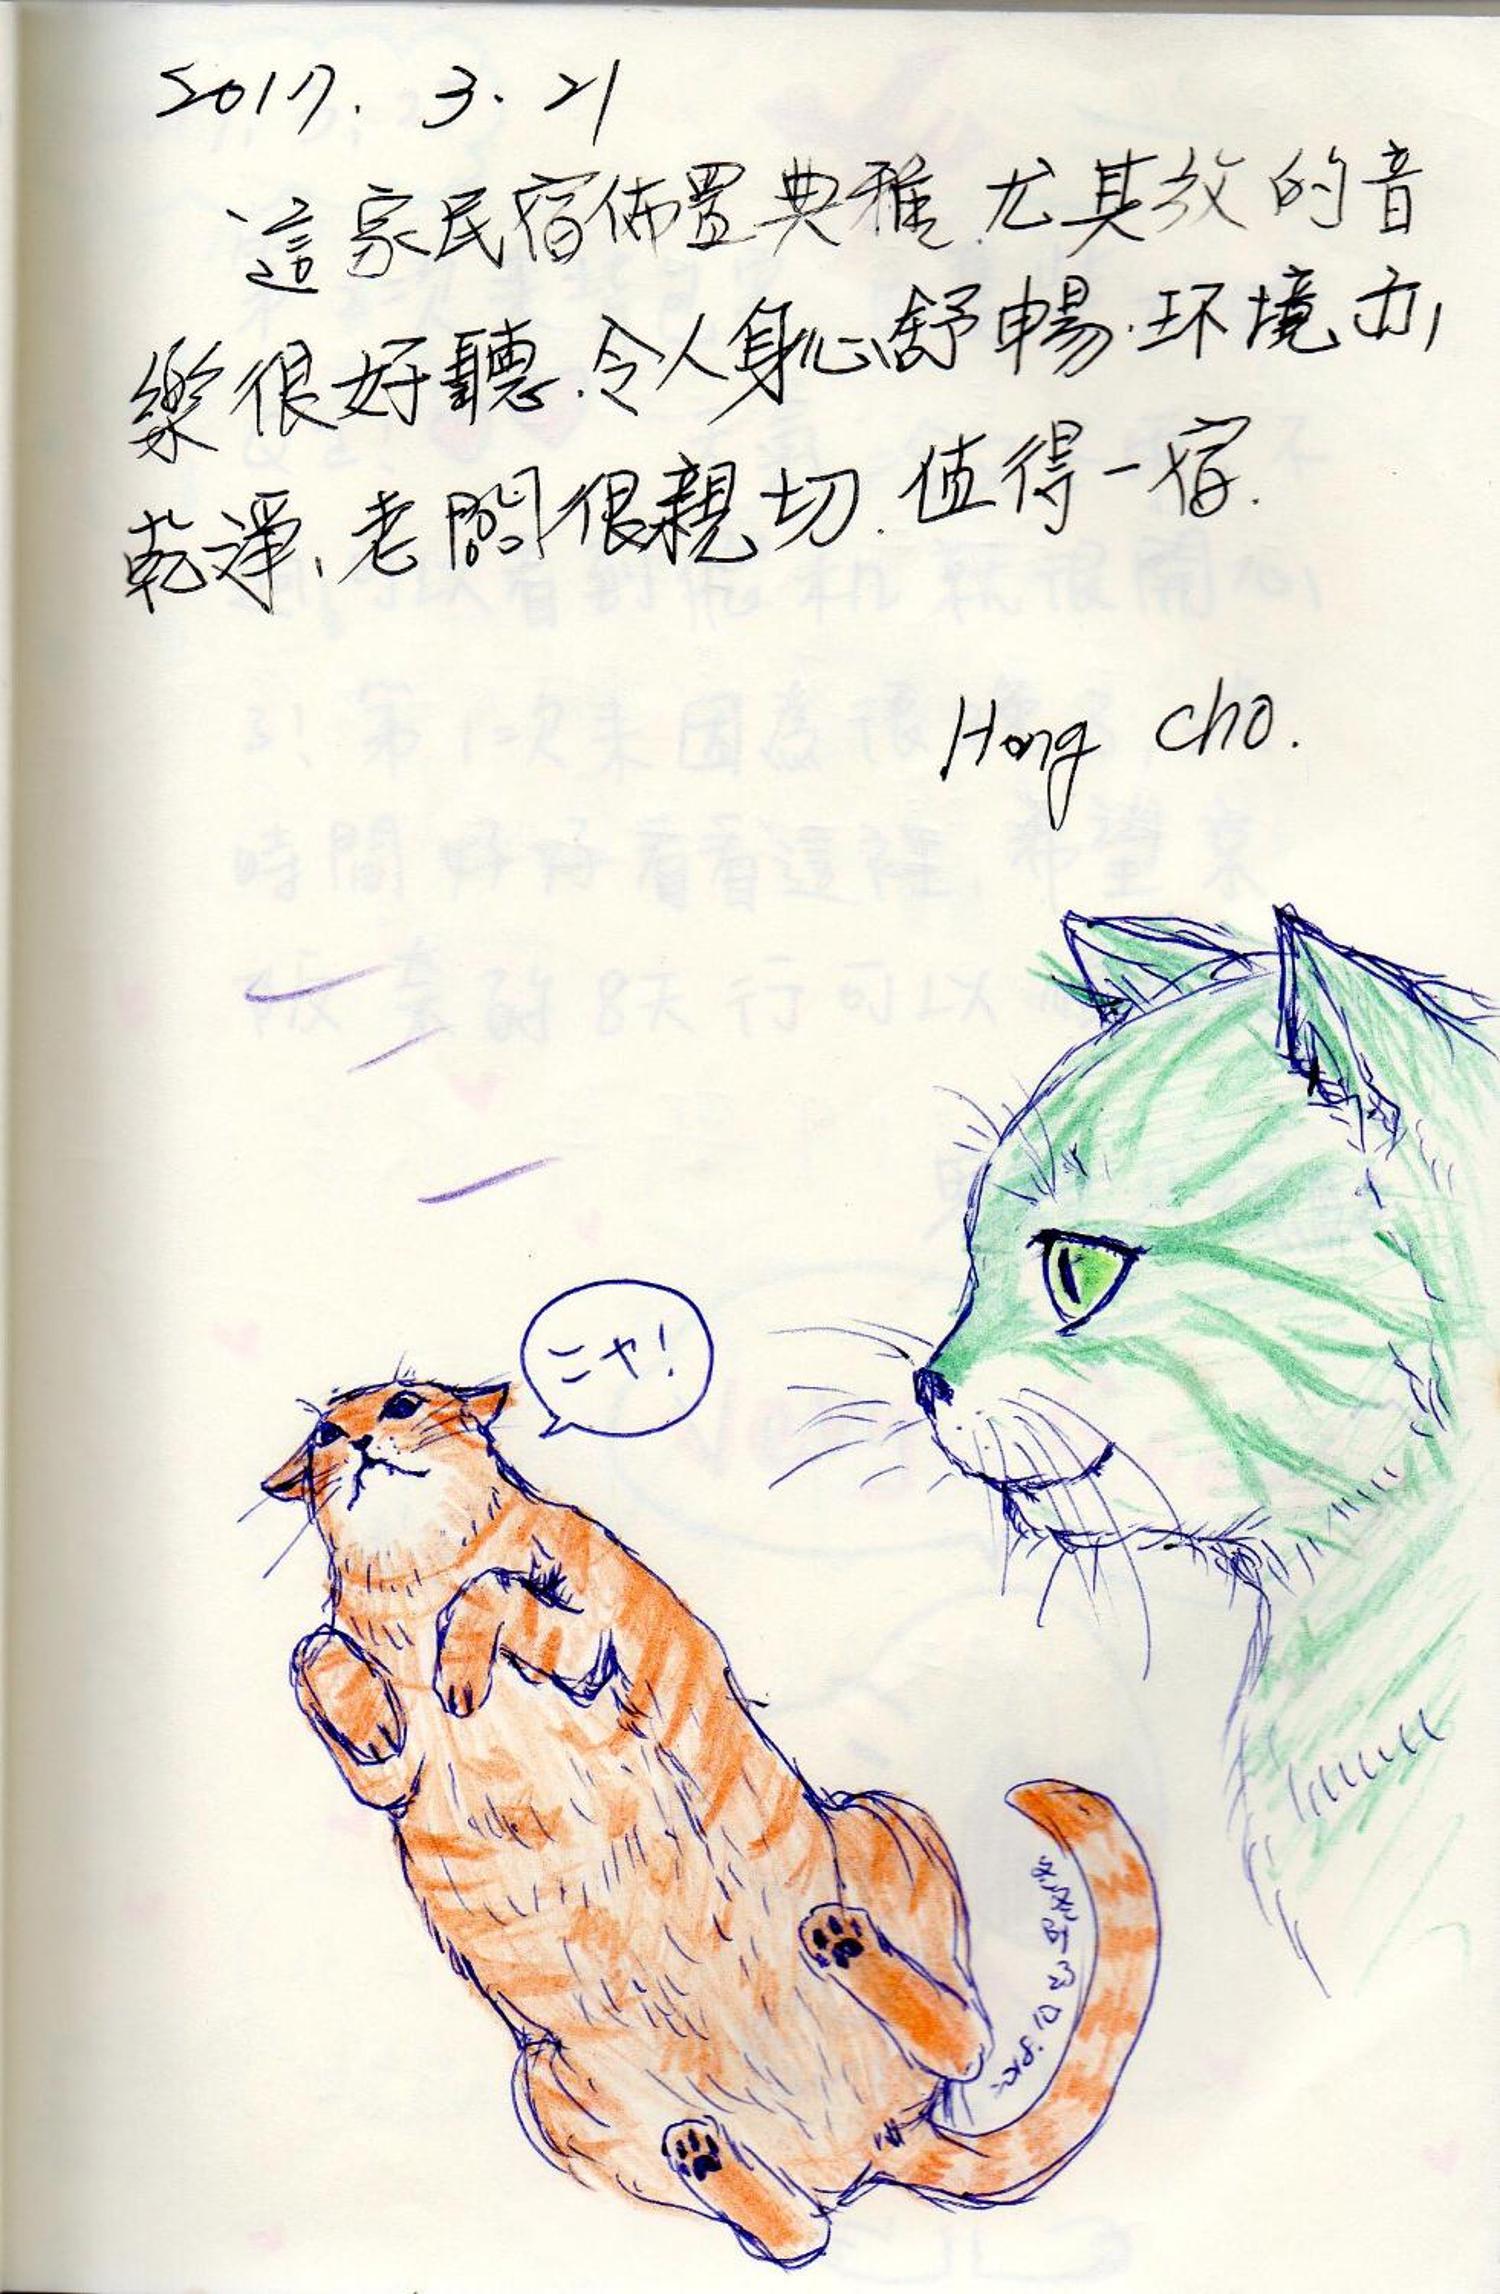 2017. 3. 21
這家民宿佈置典雅.尤其放的音
樂很好聽.令人身心舒暢.环境亦
乾淨,老闆很親切.值得一宿.
Hong Cho.
ニャ!